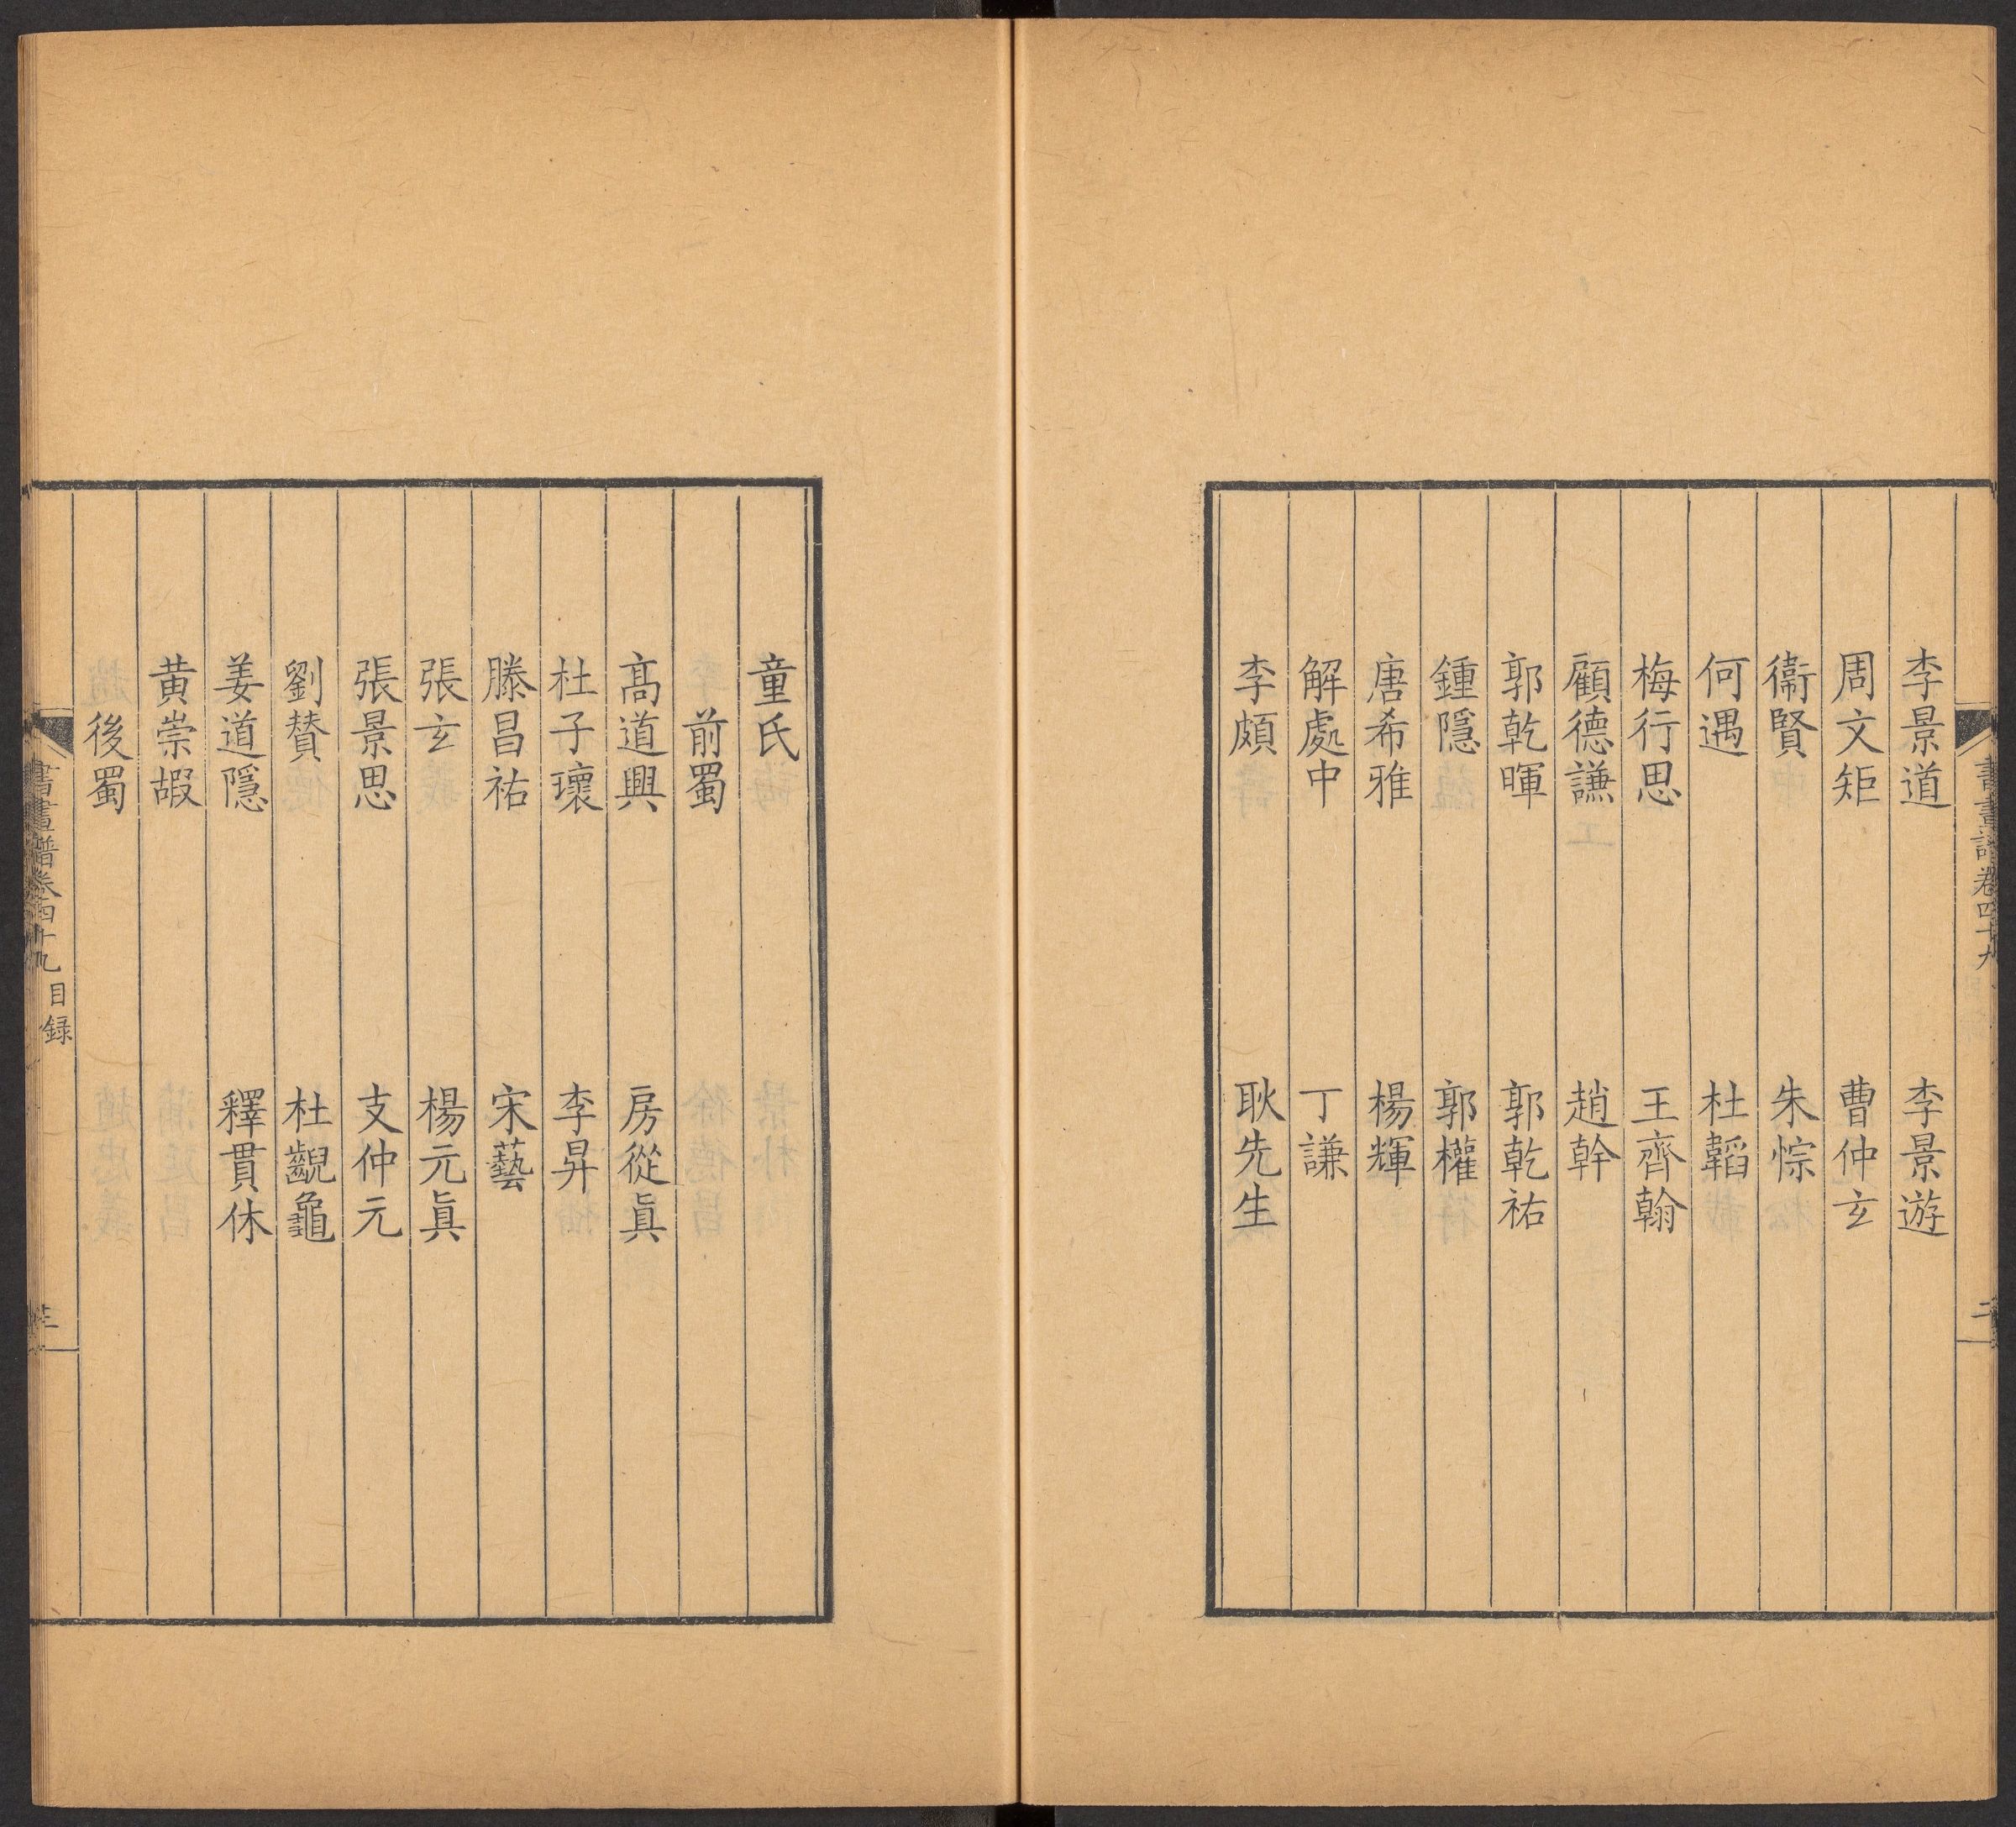 李景道 李景遊
周文矩 曹仲玄
衞賢 朱悰
何遇 杜韜
梅行思 王齊翰
顧德謙 趙幹
郭乾暉 郭乾祐
鍾隱 郭權
唐希雅 楊輝
解處中 丁謙
李頗 耿先生
書畫譜卷四十九
二
童氏
前蜀
髙道興 房從眞
杜子瓌 李昇
滕昌祐 宋藝
張玄 楊元眞
張景思 支仲元
劉贊 杜齯龜
姜道隱 釋貫休
黄崇嘏
後蜀
書畫譜卷四十九 目録
三